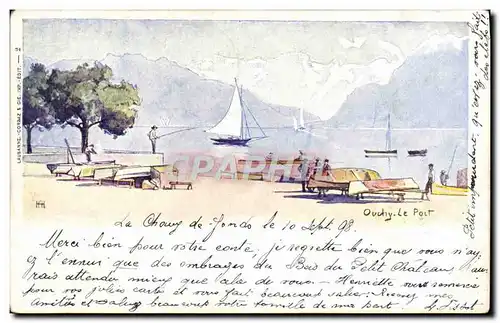 LAUSANNE, CORBAZ & CIE. IMP.-EDIT. — 21
CPAPHIL
Ouchy. Le Port
La Chaux de-fonds le 10 Sept. 98.
Merci bien pour votre carte, je regrette bien que vous n'ay,
ez l'ennui que des ombrages du Bois du Petit Château
rais attendu mieux que cela de vous. — Henriette vous remercie
pour vos jolies cartes et vous fait beaucoup saluer. Recevez mes
amitiés et saluez beaucoup votre famille de ma part.
Petit imprudent, qu'avez-vous fait